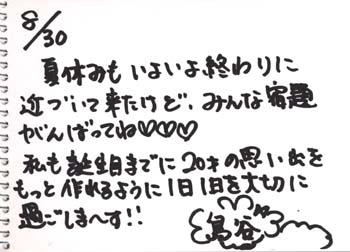 8/30
夏休みもいよいよ終わりに
近づいて来たけど、みんな宿題
がんばってね♡♡♡
私も誕生日までに20才の思い出を
もっと作れるように1日1日を大切に
過ごしまーす!!
鳥谷